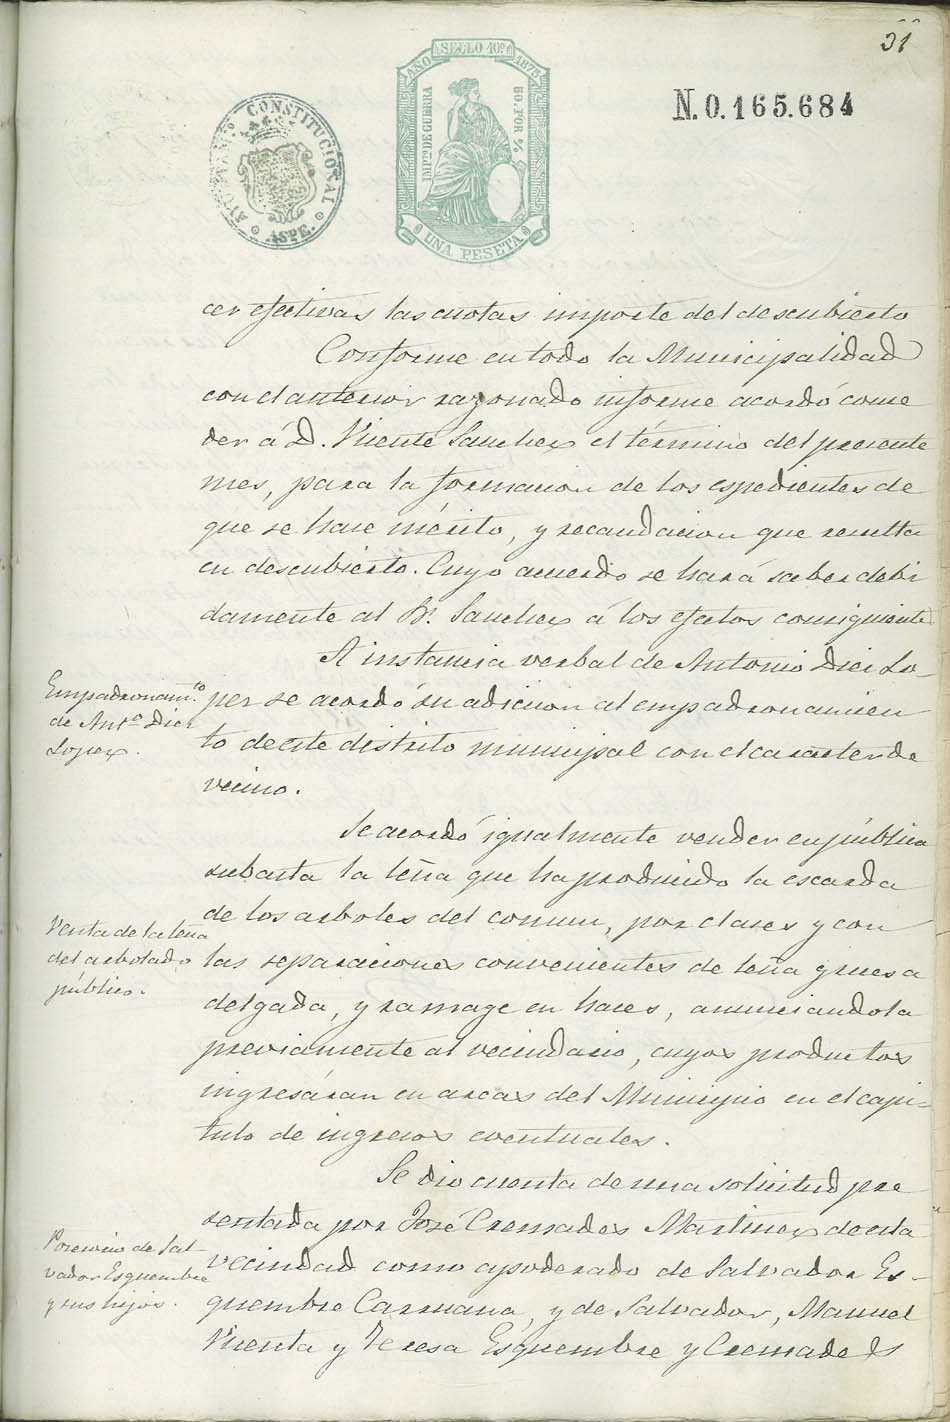 31
AYUNTAM.TO CONSTITUCIONAL
ASPE.
AÑO SELLO 10º 1875
IMP.TO DE GUERRA
50. POR %
UNA PESETA
N.0.165.684
cer efectivas las cuotas importe del descubierto
Conforme en todo la Municipalidad
con el anterior razonado informe acordó conce
der á D. Vicente Sanchez el término del presente
mes, para la formacion de los espedientes de
que se hace mérito, y recaudacion que resulta
en descubierto. Cuyo acuerdo se hará saber debi
damente al Sr. Sanchez á los efectos consiguientes
A instancia verbal de Antonio Diez Lo-
Empadronam.to
de Ant.o Diez
Lopez.
pez se acordó su adicion al empadronamien
to de este distrito municipal con el caracter de
vecino.
Se acordó igualmente vender en pública
subasta la leña que ha producido la escarda
Venta de la leña
del arbolado
público.
de los arboles del comun, por clases y con
las separaciones convenientes de leña gruesa
delgada, y ramage en haces, anunciandola
previamente al vecindario, cuyos productos
ingresáran en arcas del Municipio en el capi-
tulo de ingresos eventuales.
Se dió cuenta de una solicitud pre
sentada por José Cremades Martinez de esta
de Sal-
vador Esquembre
y sus hijos.
vecindad como apoderado de Salvador Es-
quembre Carmana, y de Salvador, Manuel
Vicenta y Teresa Esquembre y Cremades